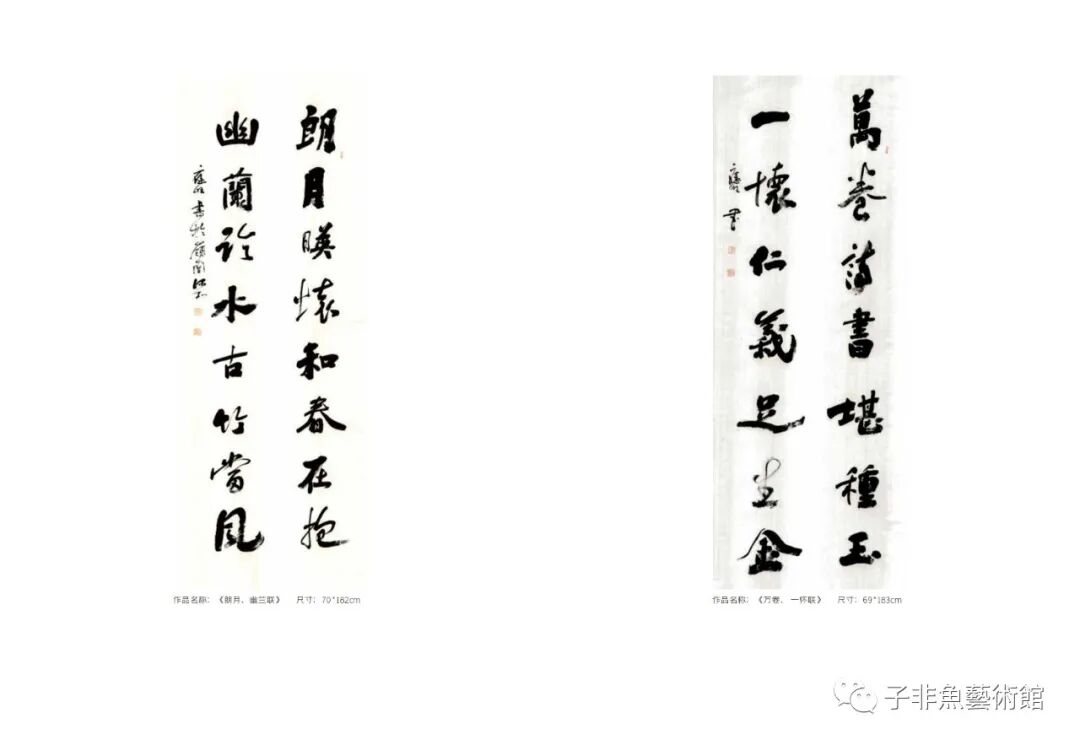 朗月暎懷和春在抱
幽蘭臨水古竹當風
作品名称：《朗月、幽兰联》 尺寸：70*182cm
萬卷詩書堪種玉
一懷仁義足生金
作品名称：《万卷、一怀联》 尺寸：69*183cm
子非魚藝術館